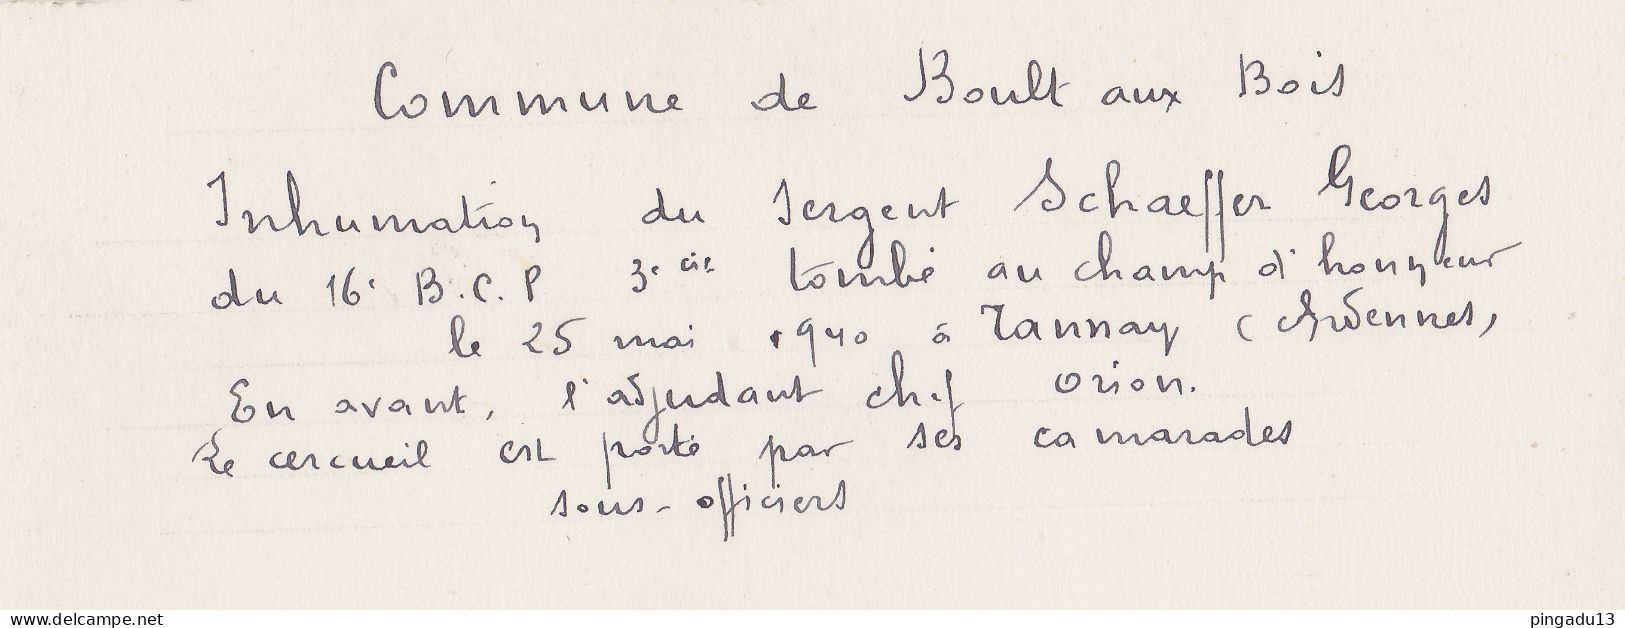 Commune de Boult aux Bois
Inhumation du Sergent Schaeffer Georges
du 16e B.C.P 3e cie tombé au champ d'honneur
le 25 mai 1940 à Tannay (Ardennes)
En avant, l'adjudant chef Orion.
Le cercueil est porté par ses camarades
sous-officiers
www.delcampe.net
pingadu13